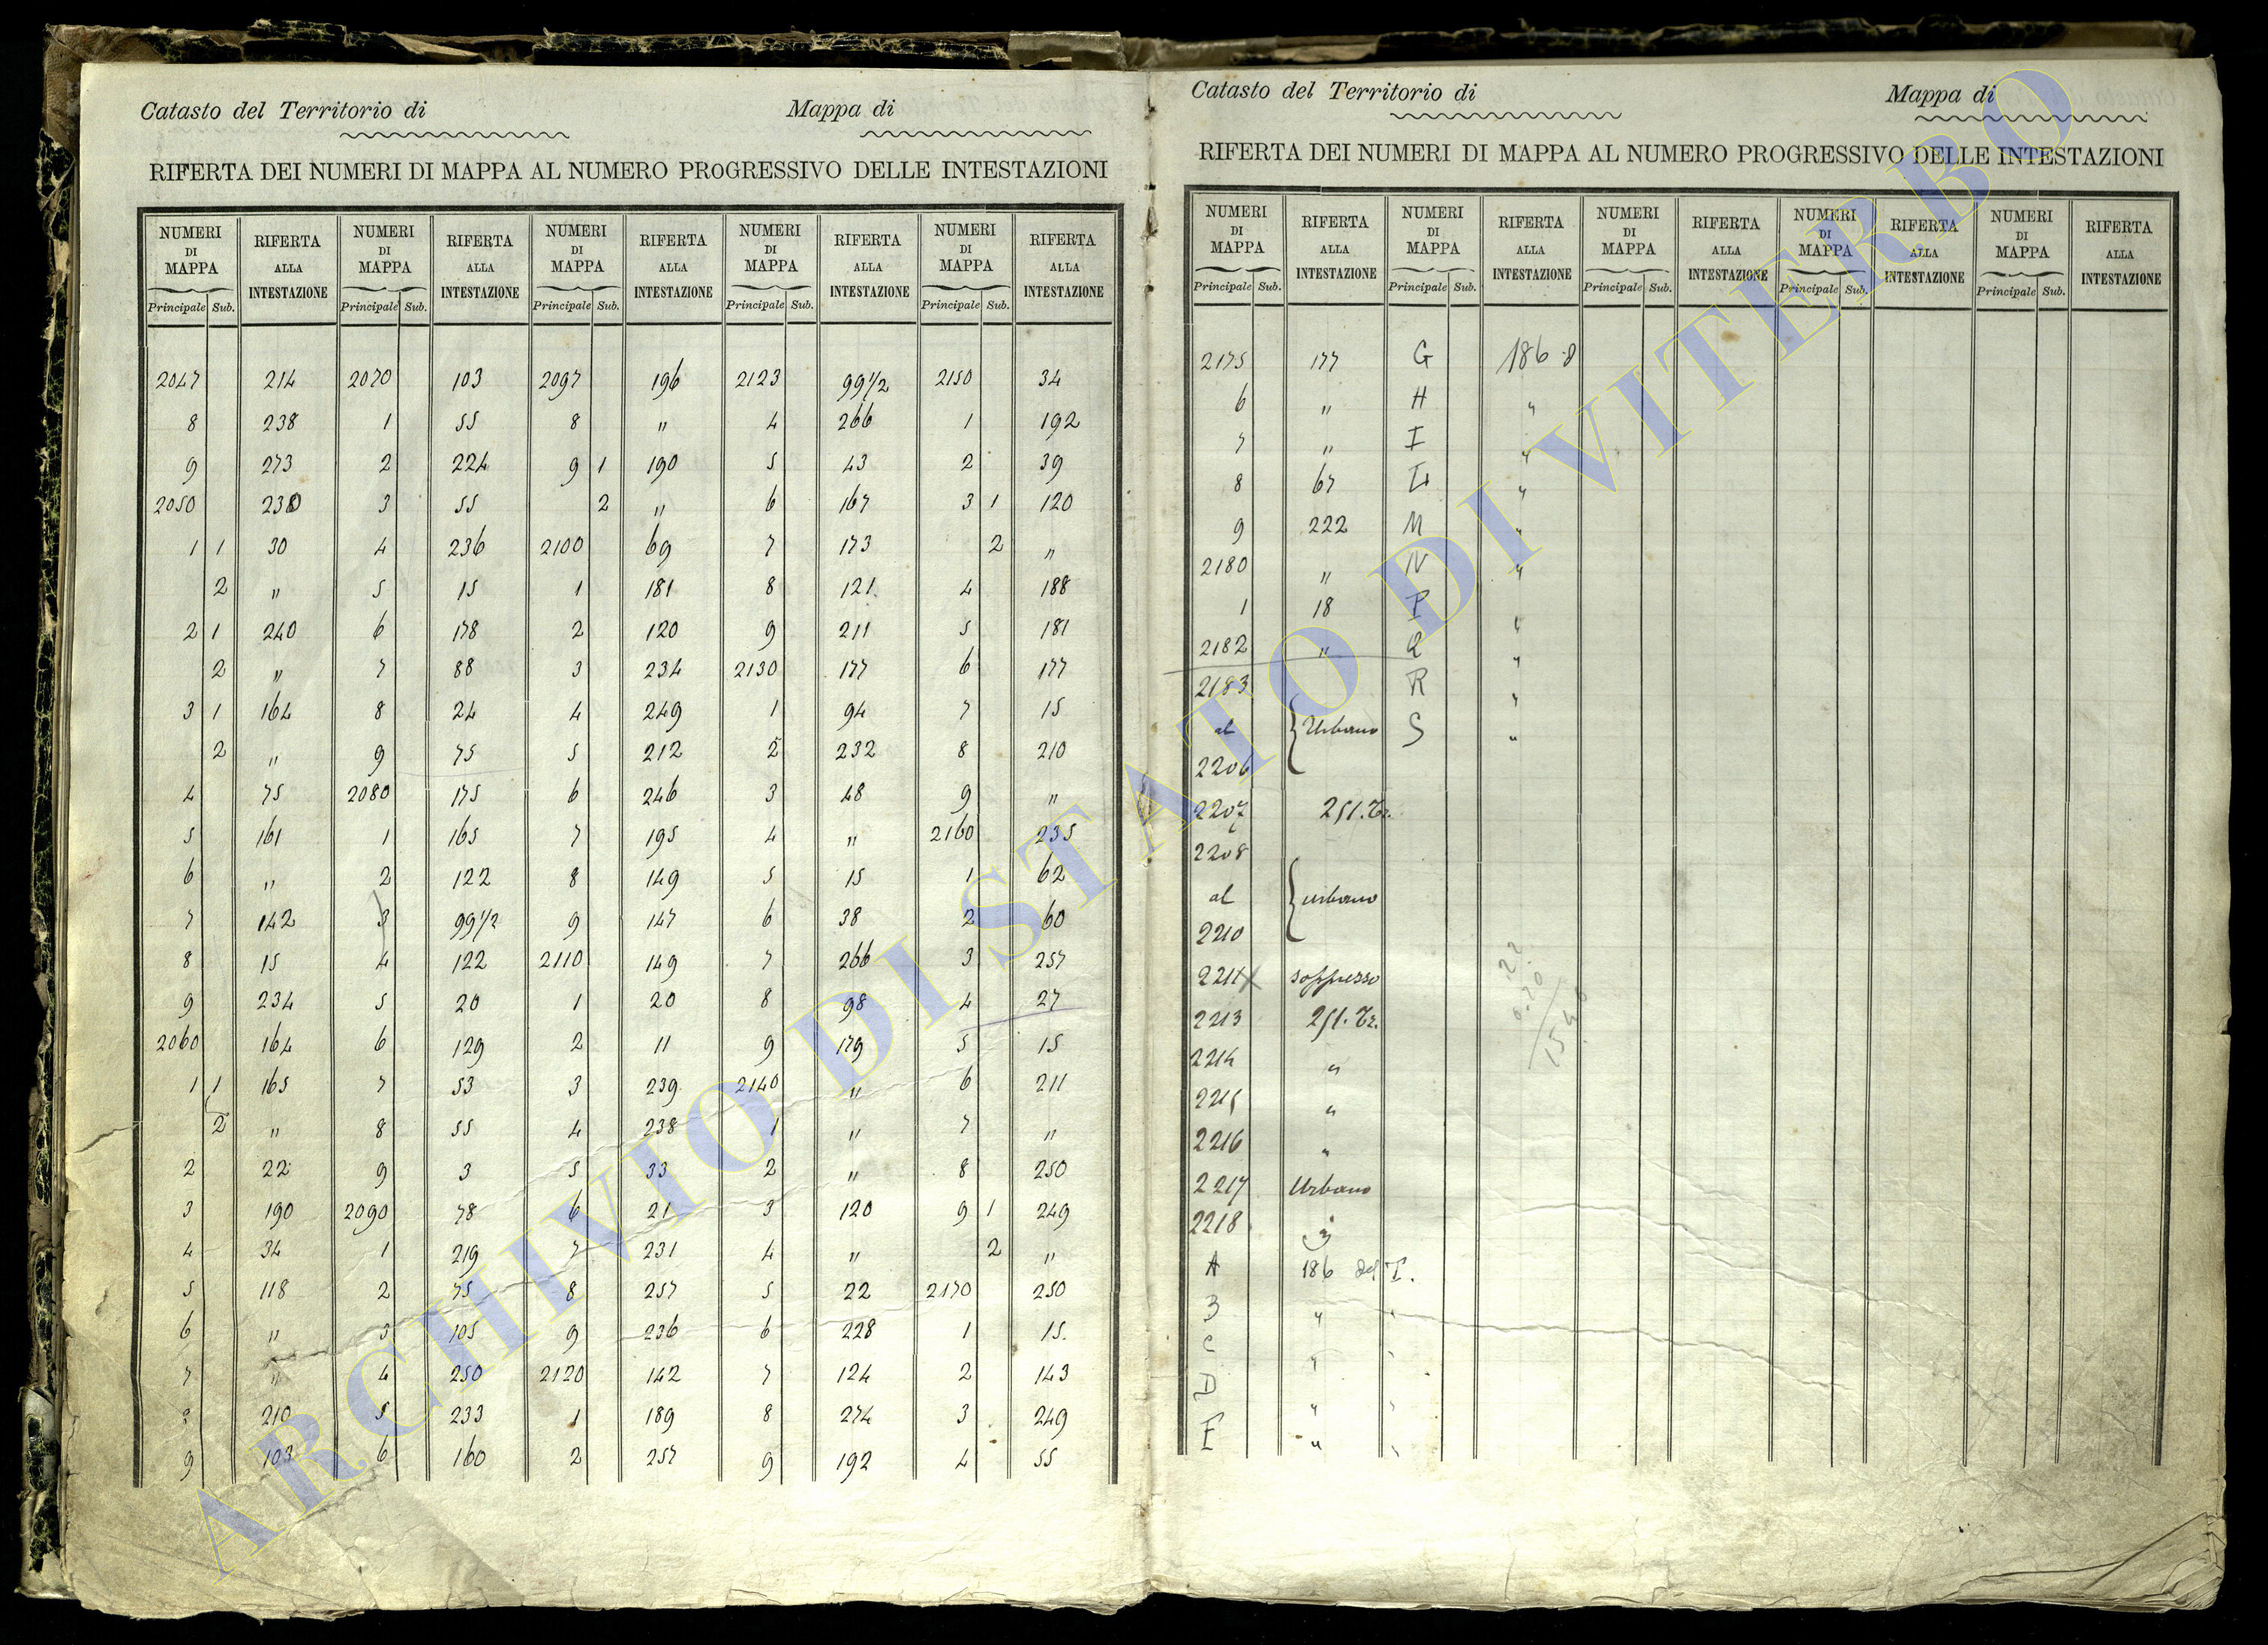 Catasto del Territorio di Mappa di
RIFERTA DEI NUMERI DI MAPPA AL NUMERO PROGRESSIVO DELLE INTESTAZIONI
NUMERI DI MAPPA RIFERTA ALLA INTESTAZIONE NUMERI DI MAPPA RIFERTA ALLA INTESTAZIONE NUMERI DI MAPPA RIFERTA ALLA INTESTAZIONE NUMERI DI MAPPA RIFERTA ALLA INTESTAZIONE NUMERI DI MAPPA RIFERTA ALLA INTESTAZIONE
Principale Sub. Principale Sub. Principale Sub. Principale Sub. Principale Sub.
2047 214 2070 103 2097 196 2123 99 1/2 2150 34
8 238 1 55 8 " 4 266 1 192
9 273 2 224 9 1 190 5 43 2 39
2050 238 3 55 2 " 6 167 3 1 120
1 1 30 4 236 2100 69 7 173 2 "
2 " 5 15 1 181 8 121 4 188
2 1 240 6 178 2 120 9 211 5 181
2 " 7 88 3 234 2130 177 6 177
3 1 164 8 24 4 249 1 94 7 15
2 " 9 75 5 212 2 232 8 210
4 75 2080 175 6 246 3 48 9 "
5 161 1 165 7 195 4 " 2160 235
6 " 2 122 8 149 5 15 1 62
7 142 3 99 1/2 9 147 6 38 2 60
8 15 4 122 2110 149 7 266 3 257
9 234 5 20 1 20 8 98 4 27
2060 164 6 129 2 11 9 179 5 15
1 1 165 7 53 3 239 2140 " 6 211
2 " 8 55 4 238 1 " 7 "
2 22 9 3 5 33 2 " 8 250
3 190 2090 78 6 21 3 120 9 1 249
4 34 1 219 7 231 4 " 2 "
5 118 2 75 8 257 5 22 2170 250
6 " 3 105 9 236 6 228 1 15
7 " 4 250 2120 142 7 124 2 143
210 5 233 1 189 8 274 3 249
9 103 6 160 2 257 9 192 4 55
Catasto del Territorio di Mappa di
RIFERTA DEI NUMERI DI MAPPA AL NUMERO PROGRESSIVO DELLE INTESTAZIONI
NUMERI DI MAPPA RIFERTA ALLA INTESTAZIONE NUMERI DI MAPPA RIFERTA ALLA INTESTAZIONE NUMERI DI MAPPA RIFERTA ALLA INTESTAZIONE NUMERI DI MAPPA RIFERTA ALLA INTESTAZIONE NUMERI DI MAPPA RIFERTA ALLA INTESTAZIONE
Principale Sub. Principale Sub. Principale Sub. Principale Sub. Principale Sub.
2175 177 G 186
6 " H "
7 " I "
8 67 L "
9 222 M "
2180 " N "
1 18 P "
2182 " Q "
2183 R "
al Urbano S "
2206
2207 251.Tr.
2208
al urbano
2210
2211 soppresso
2213 251.Tr.
2214 "
2215 "
2216 "
2217 Urbano
2218 "
A 186 del T.
B " "
C " "
D " "
E " "
ARCHIVIO DI STATO DI VITERBO